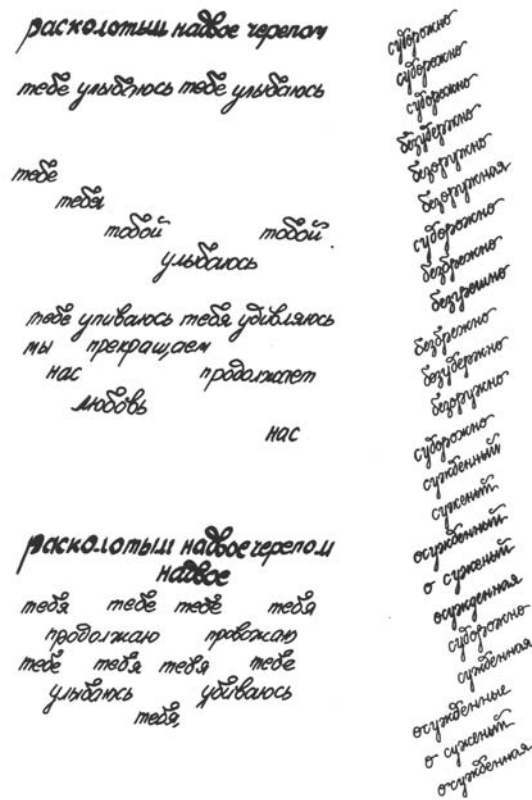 расколотым надвое черепом
тебе улыбаюсь тебе улыбаюсь
тебе
тебя
тобой тобой
улыбаюсь
тебе упиваюсь тебя удивляюсь
мы прекращаем
нас продолжает
любовь
нас
расколотым надвое черепом
надвое
тебя тебе тебе тебя
продолжаю провожаю
тебе тебя тебя тебе
улыбаюсь убиваюсь
тебя,
судорожно
судорожно
судорожно
безудержно
безоружно
безоружная
судорожно
безбрежно
безгрешно
безбрежно
безудержно
безоружно
судорожно
сужденный
суженый
осужденный
о суженый
осужденная
судорожно
сужденная
осужденные
о суженый
осужденная